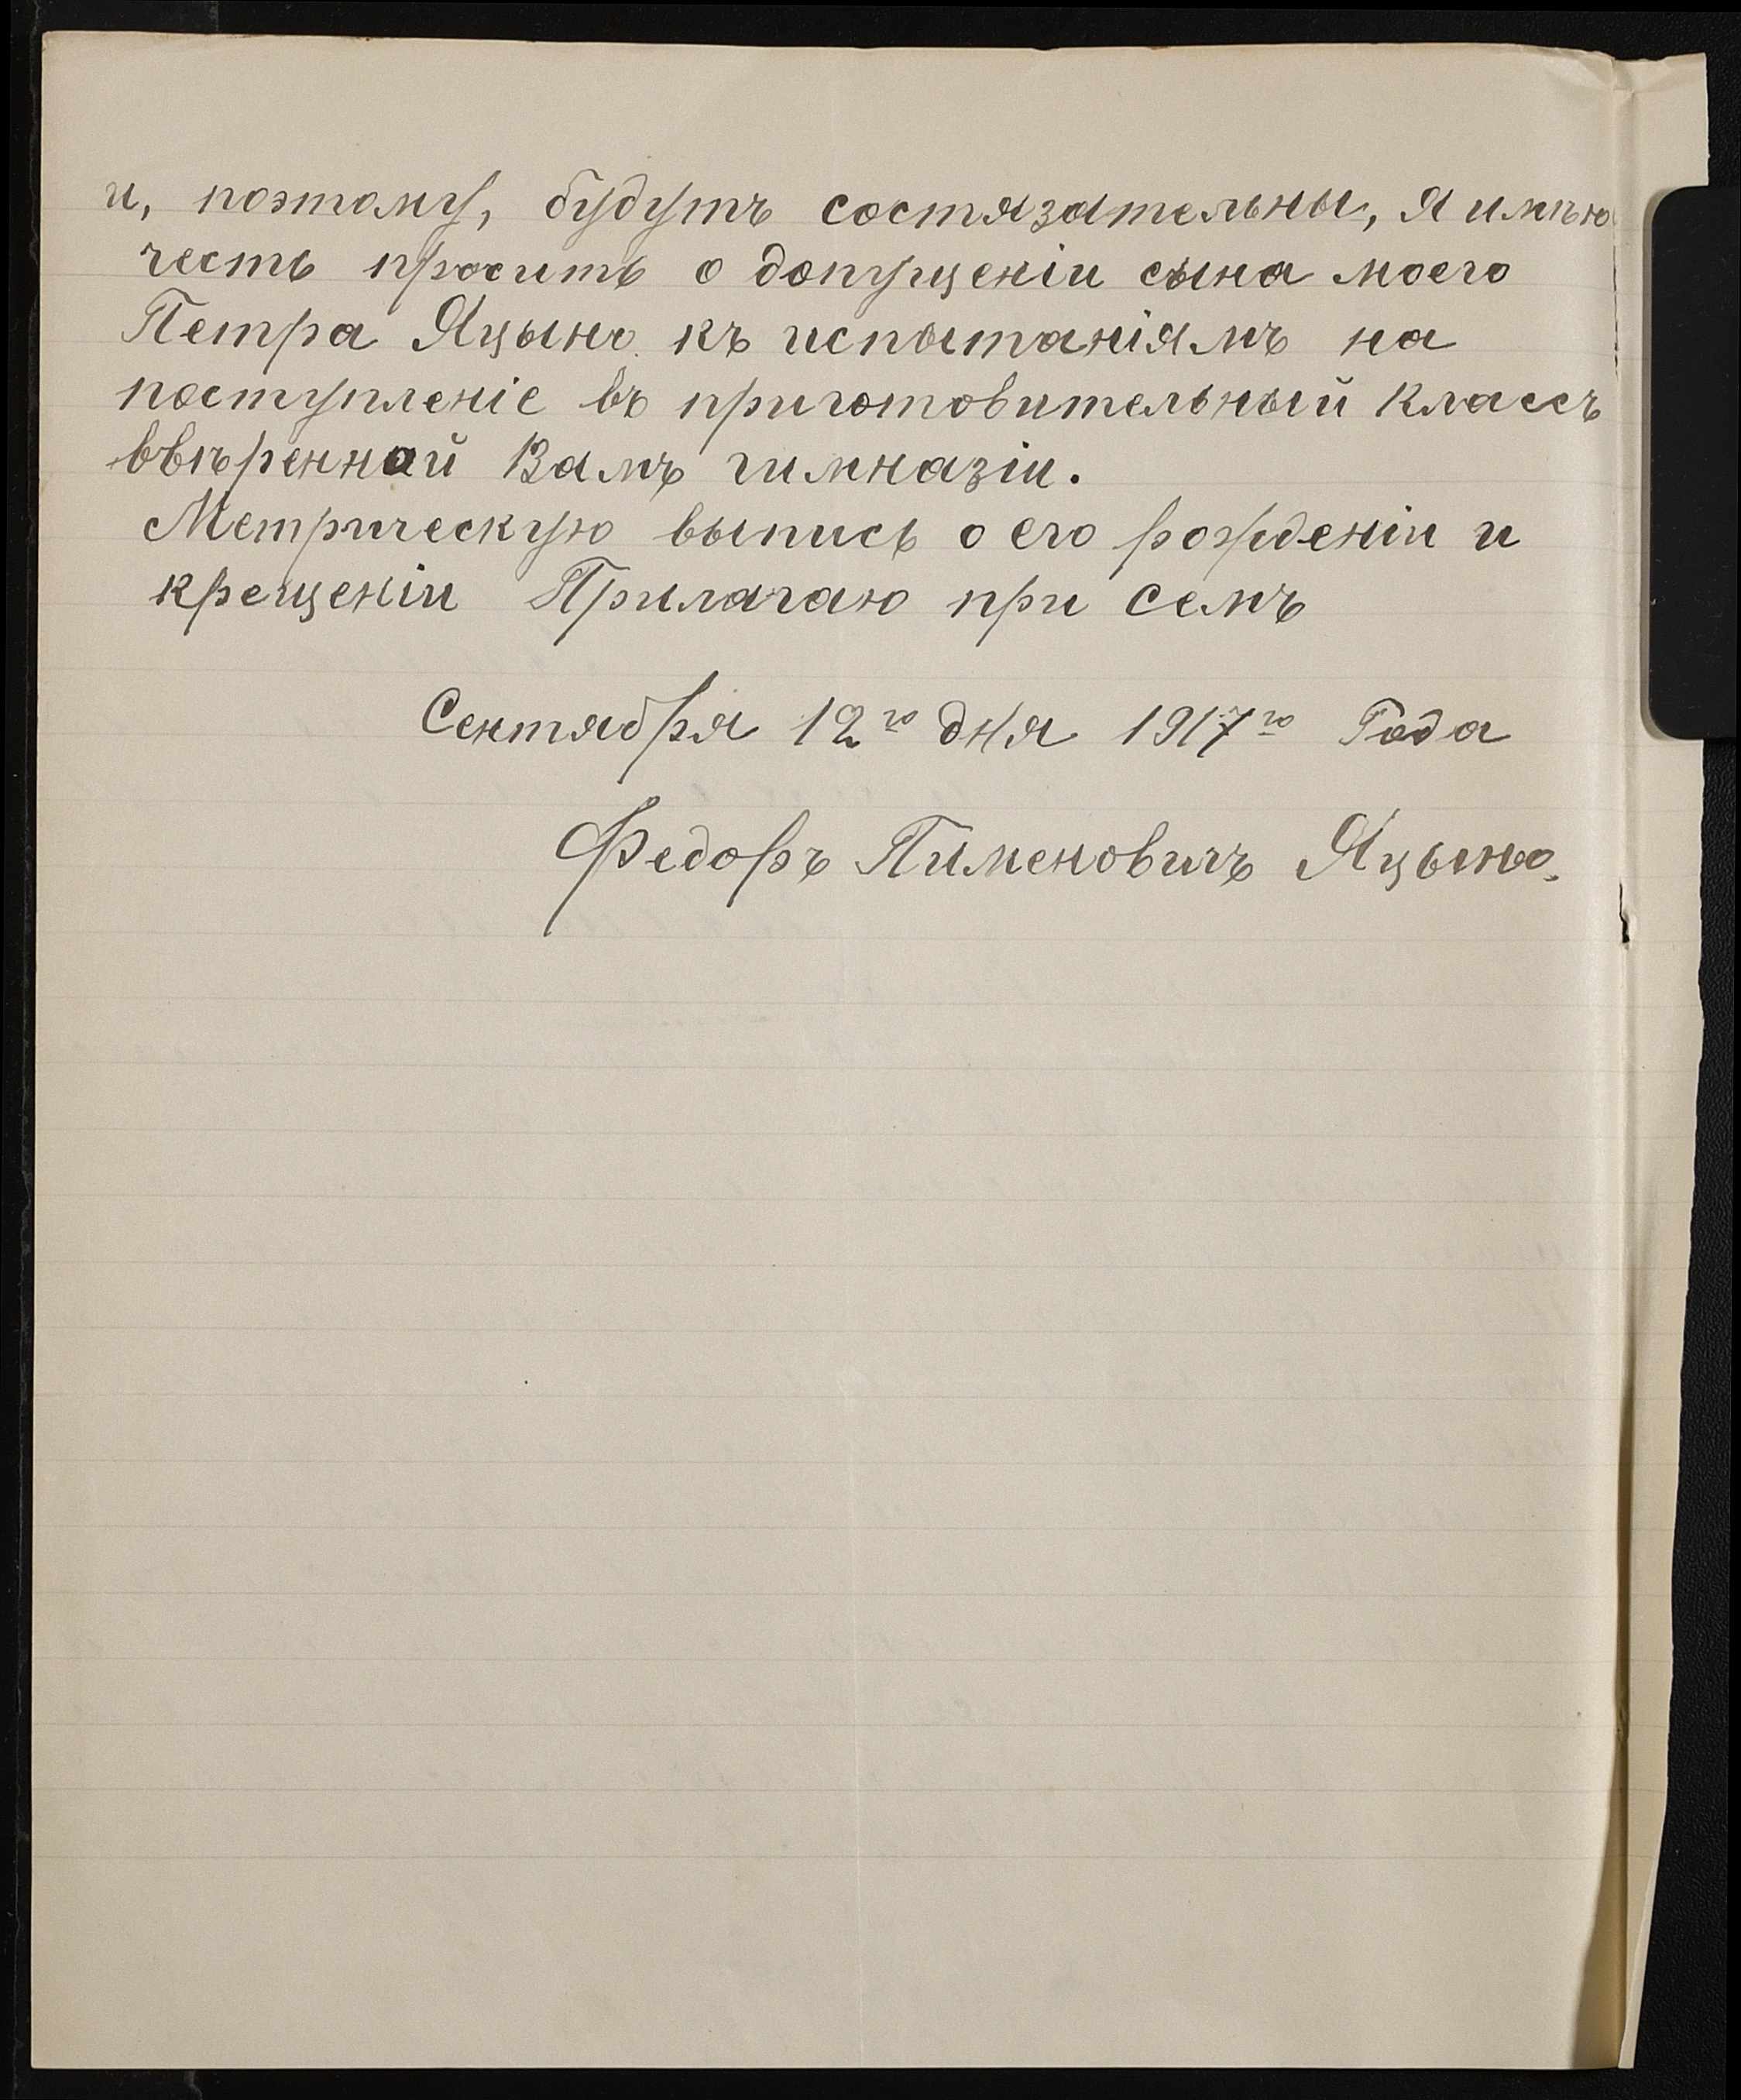 и, поэтому, будутъ состязательны, я имѣю
честь просить о допущеніи сына моего
Петра Яцыно къ испытаніямъ на
поступленіе въ приготовительный классъ
ввѣренной Вамъ гимназіи.
Метрическую выпись о его рожденіи и
крещеніи Прилагаю при семъ
Сентября 12го дня 1917го Года
Федоръ Пименовичъ Яцыно.